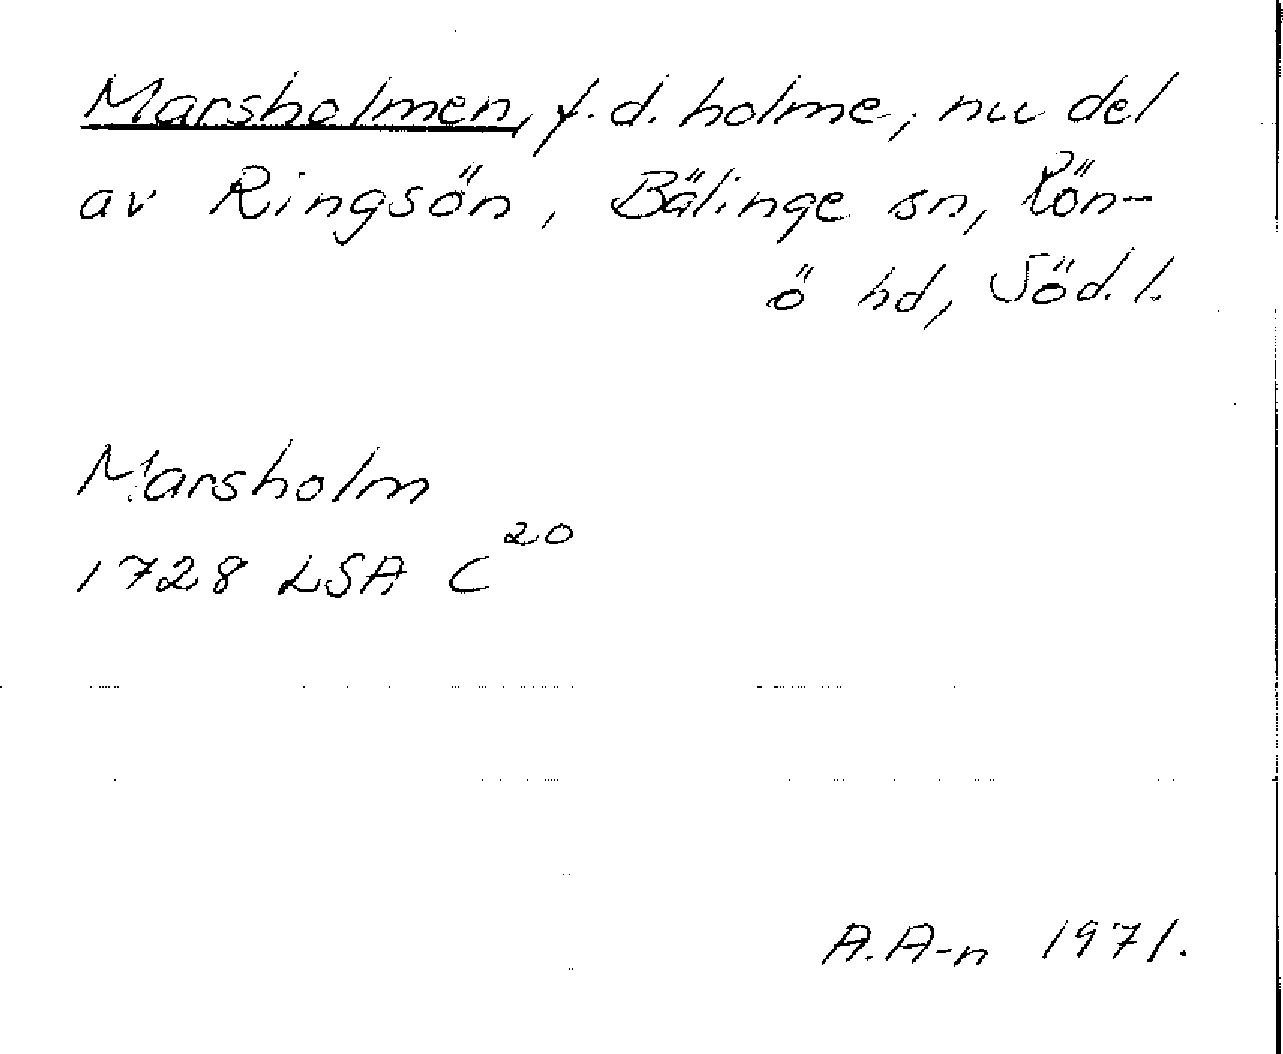 Marsholmen, f.d. holme, nu del
av Ringsön, Bälinge sn, Rön-
ö hd, Söd.l.
Marsholm
1728 LSA C²⁰
A.A-n 1971.